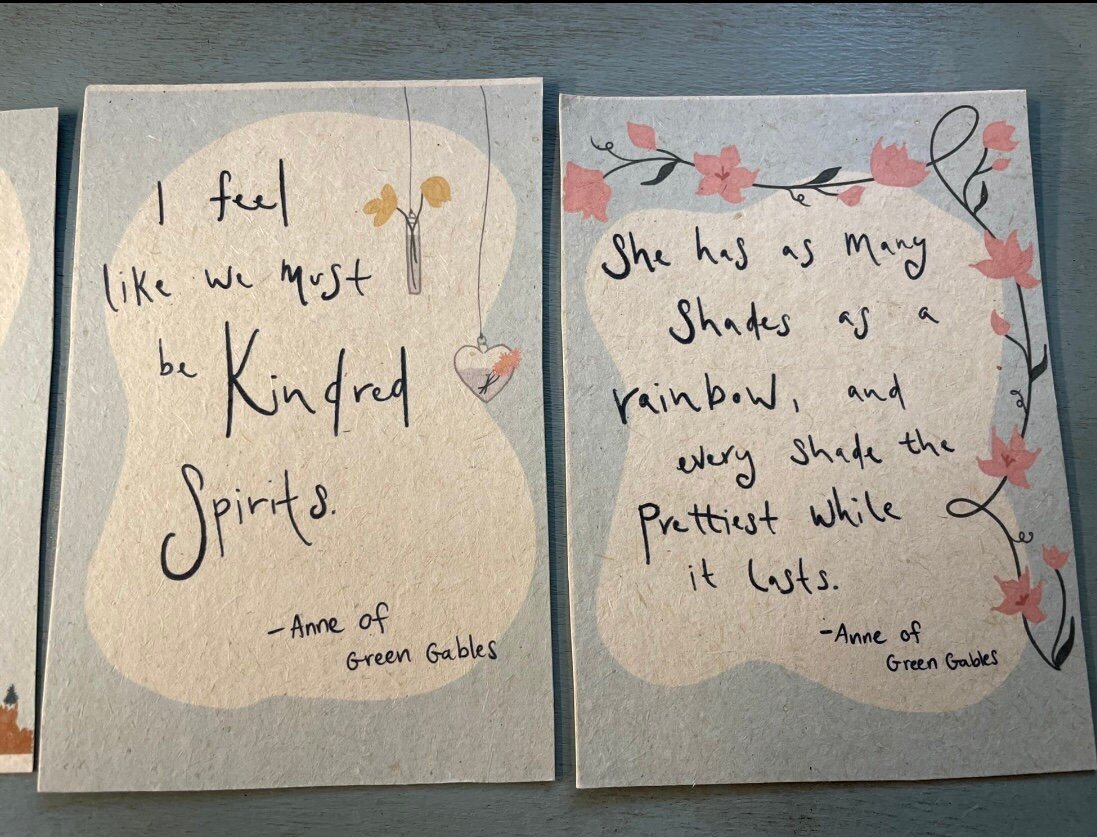 I feel
like we must
be Kindred
Spirits.
-Anne of
Green Gables
She has as many
shades as a
rainbow, and
every shade the
prettiest while
it lasts.
-Anne of
Green Gables